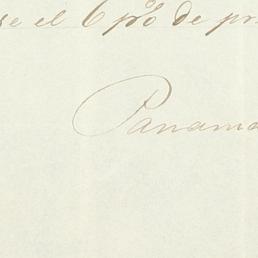 se el 6 p% de pr
Panamá